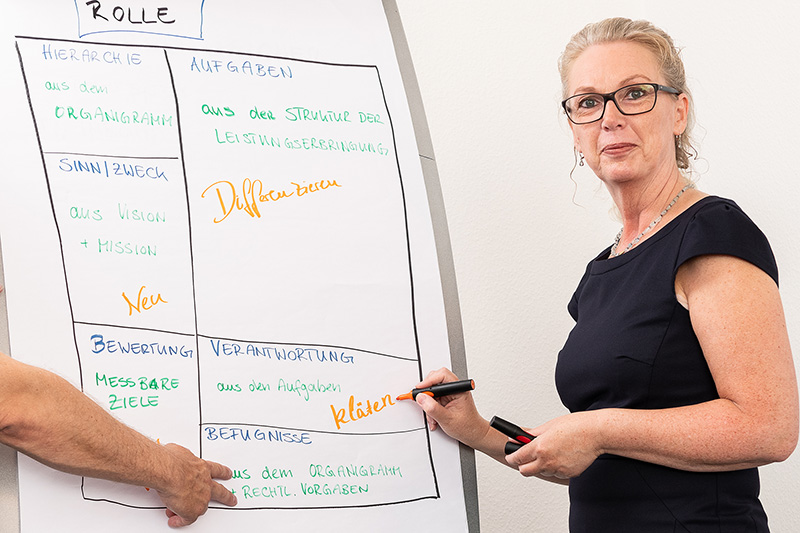 ROLLE
HIERARCHIE
aus dem
ORGANIGRAMM
AUFGABEN
aus der STRUKTUR DER
LEISTUNGSERBRINGUNG,
Differenzieren
SINN/ZWECK
aus VISION
+ MISSION
Neu
BEWERTUNG
MESSBARE
ZIELE
VERANTWORTUNG
aus den Aufgaben
klären
BEFUGNISSE
aus dem ORGANIGRAMM
+ RECHTL. VORGABEN